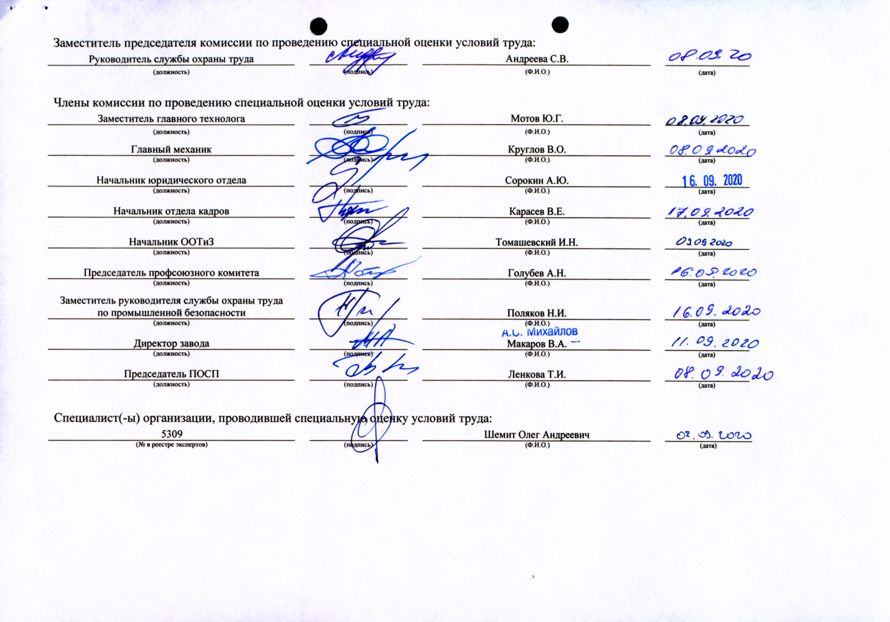 Заместитель председателя комиссии по проведению специальной оценки условий труда:
Руководитель службы охраны труда Андреева С.В. 08.09.20
(должность) (подпись) (Ф.И.О.) (дата)
Члены комиссии по проведению специальной оценки условий труда:
Заместитель главного технолога Мотов Ю.Г. 08.09.2020
(должность) (подпись) (Ф.И.О.) (дата)
Главный механик Круглов В.О. 08 09 2020
(должность) (подпись) (Ф.И.О.) (дата)
Начальник юридического отдела Сорокин А.Ю. 16. 09. 2020
(должность) (подпись) (Ф.И.О.) (дата)
Начальник отдела кадров Карасев В.Е. 17.09.2020
(должность) (подпись) (Ф.И.О.) (дата)
Начальник ООТиЗ Томашевский И.Н.
(должность) (подпись) (Ф.И.О.) (дата)
Председатель профсоюзного комитета Голубев А.Н. 16.09 2020
(должность) (подпись) (Ф.И.О.) (дата)
Заместитель руководителя службы охраны труда
по промышленной безопасности Поляков Н.И. 16.09. 2020
(должность) (подпись) (Ф.И.О.) (дата)
А.С. Михайлов
Директор завода Макаров В.А. 11. 09. 2020
(должность) (подпись) (Ф.И.О.) (дата)
Председатель ПОСП Ленкова Т.И. 08. 09. 2020
(должность) (подпись) (Ф.И.О.) (дата)
Специалист(-ы) организации, проводившей специальную оценку условий труда:
5309 Шемит Олег Андреевич 02.09.2020
(№ в реестре экспертов) (подпись) (Ф.И.О.) (дата)